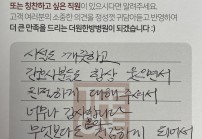 또는 칭찬하고 싶은 직원이 있으시다면 알려주세요.
고객 여러분의 소중한 의견을 정성껏 귀담아듣고 반영하여
더 큰 만족을 드리는 더원한방병원이 되겠습니다 :)
시설도 깨끗하고
간호사분들 항상 웃으면서
친절하게 대해주셔서
너무나 감사합니다